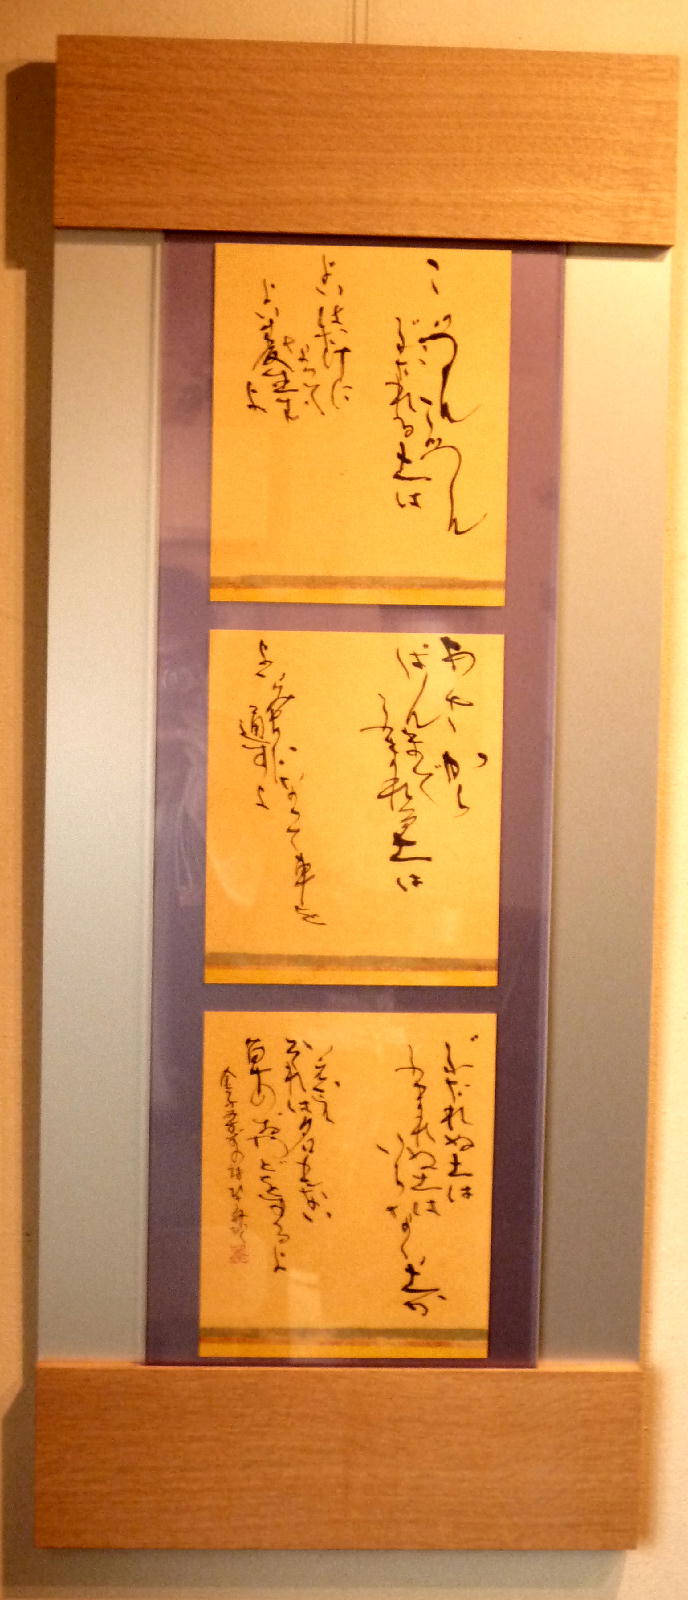 こッつんこッつん
ぶたれる土は
よいはたけに
なって
よい麦生む
よ
あさから
ばんまで
ふまれる土は
よいみちになって車を
通すよ
ぶたれぬ土は
ふまれぬ土は
いらない土か
いえいえ
それは名もない
草のお宿をするよ
金子みすゞの詩